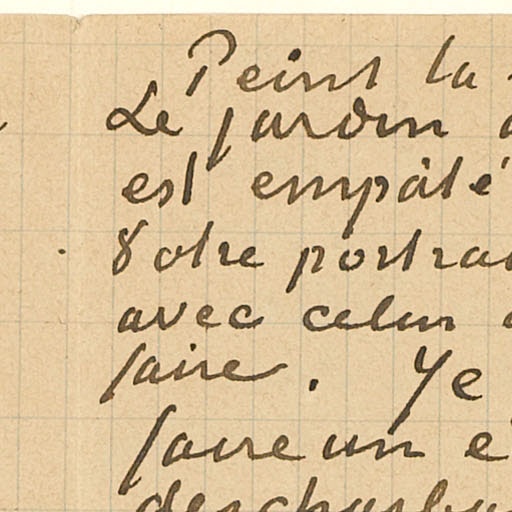 Peint la
Le jardin
est empâté
Votre portrai
avec celui
faire. Je
faire un e